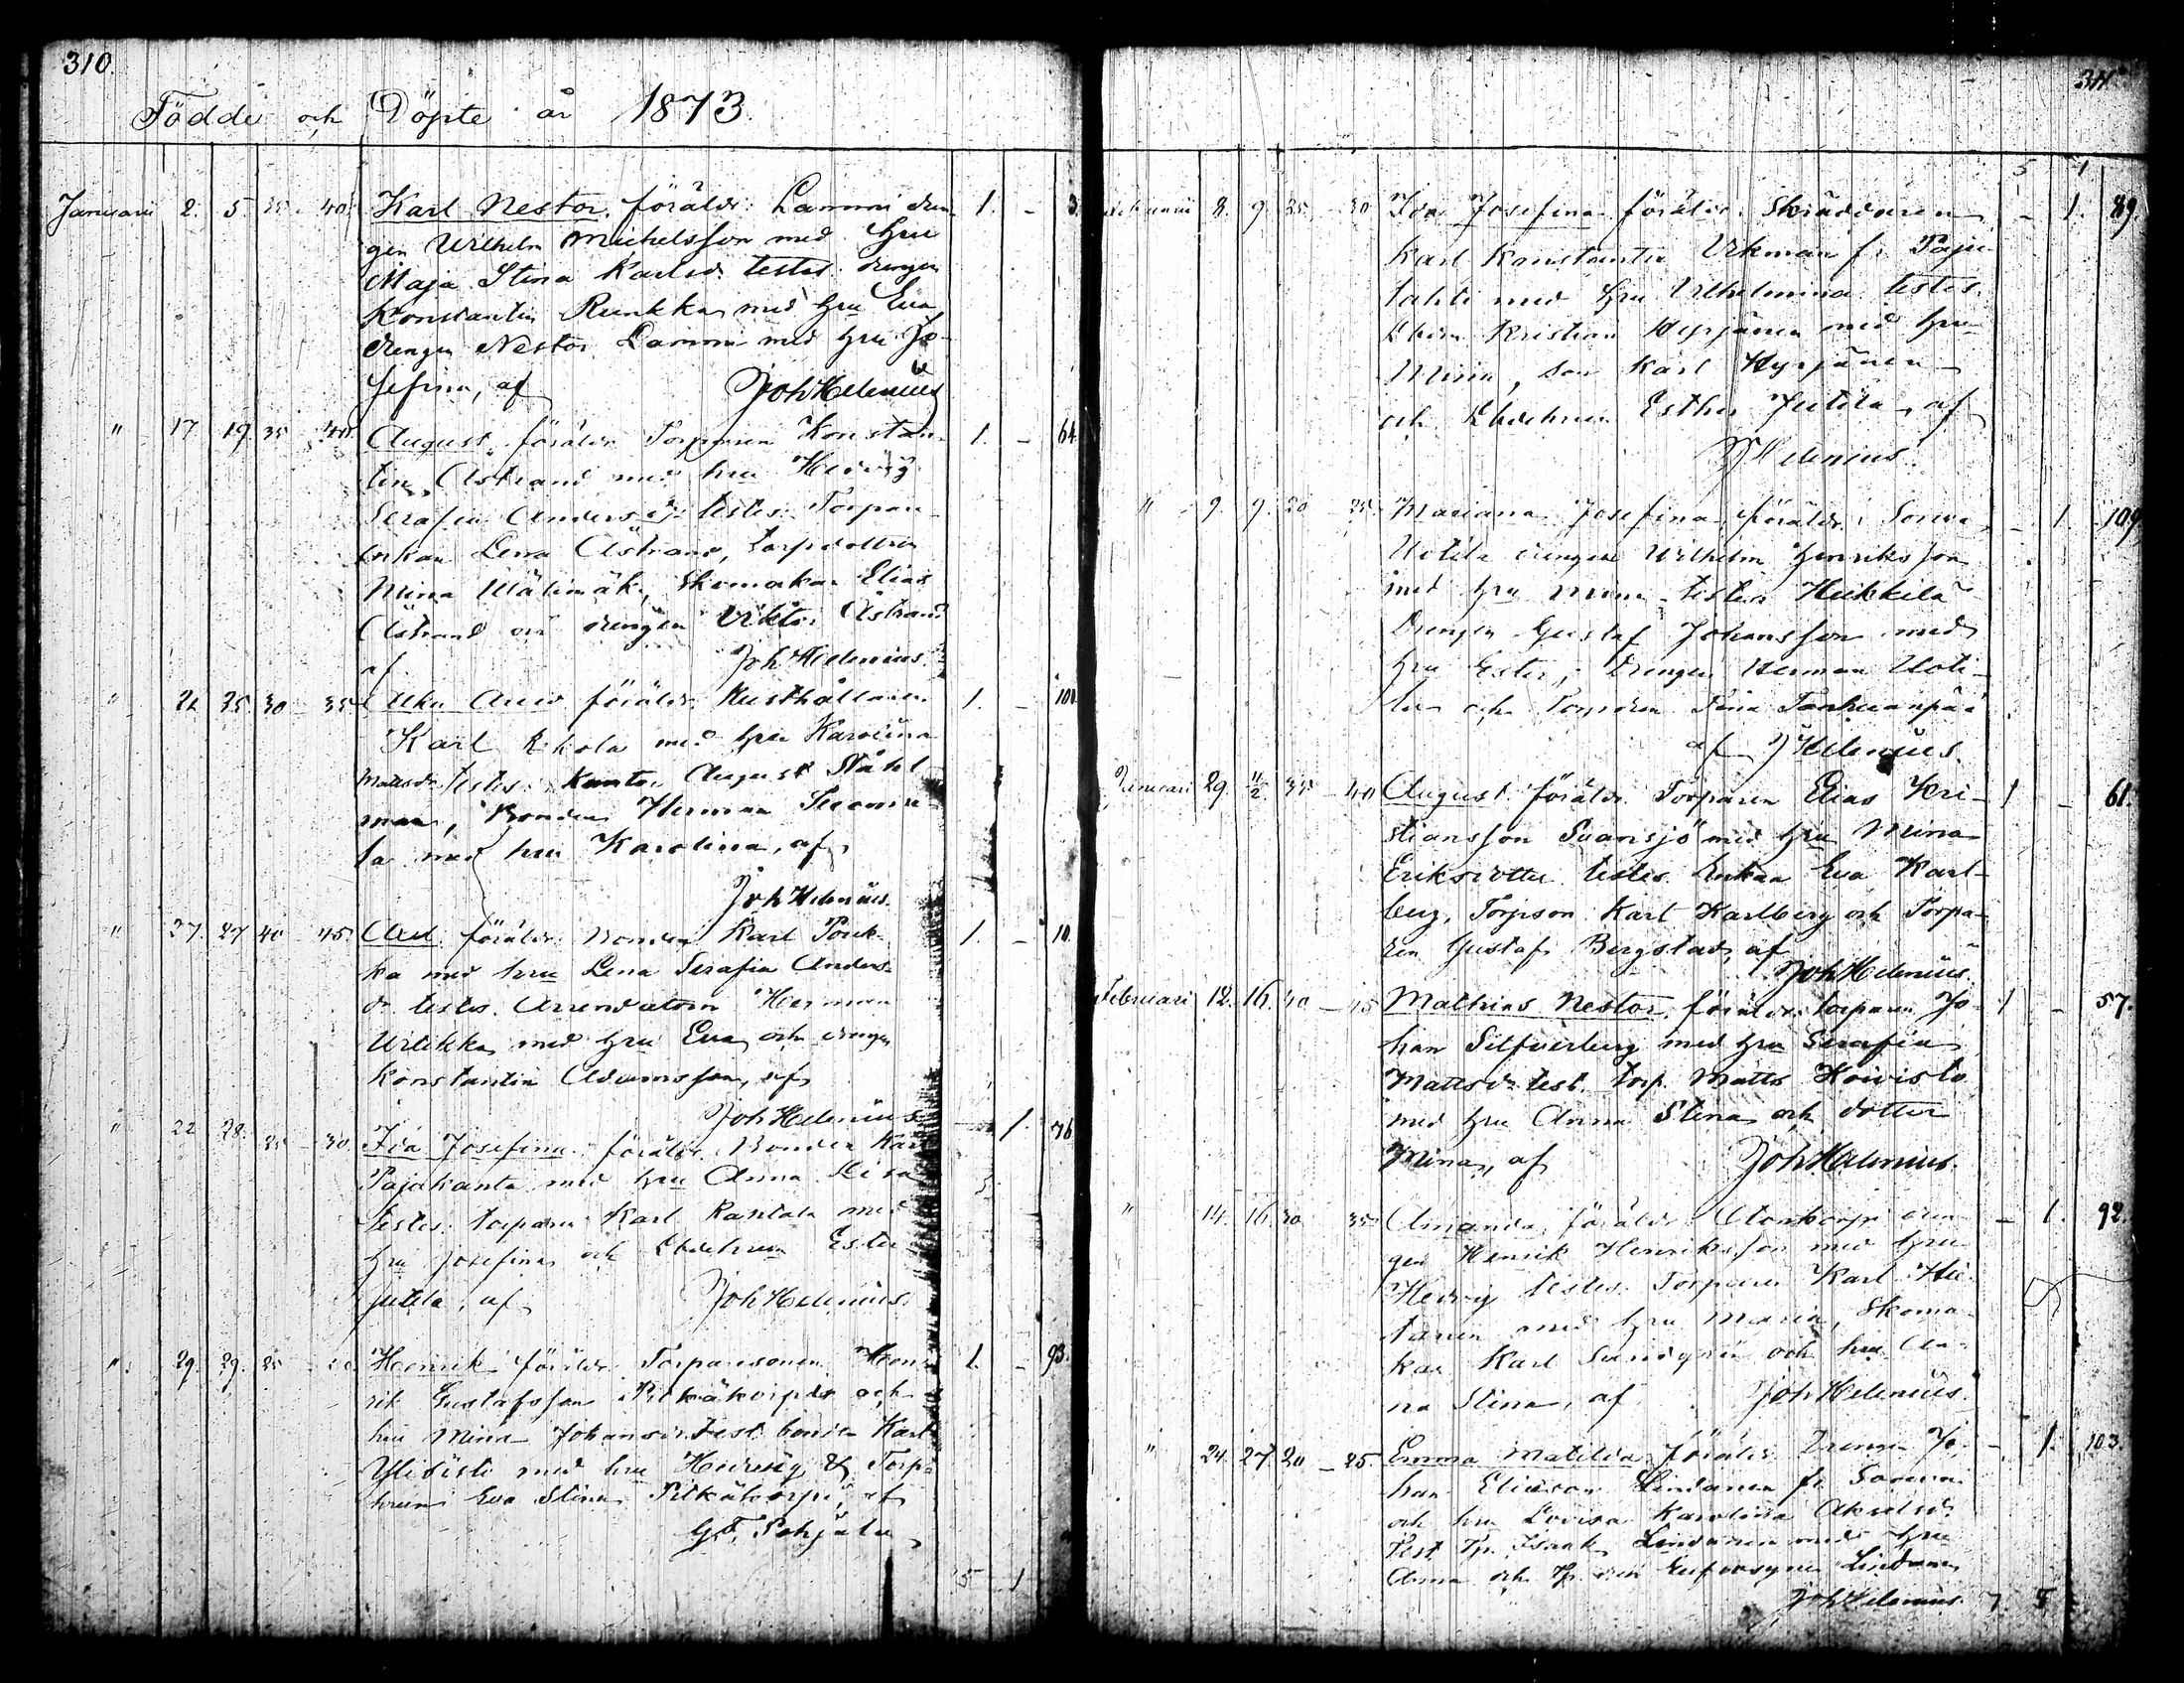 310.
Födde och Döpte år 1873.
Januarii 2. 5. 35 - 40. Karl Nestor, föräldr: Lammi dren- 1. - 3.
gen Wilhelm Michelsson med hru
Maja Stina Karlsdr testes: drengen
Konstantin Runkka med hru Eva
drengen Nestor Lammi med hru Jo-
sefina, af Joh Helenius
" 17 19. 35 - 40. August, föräldr Torparen Konstan- 1. - 64.
tin Åstrand med hru Hedvig
Serafia Andersdr testes: Torpare
enkan Lena Åstrand, torpdottren
Mina Wälimäki, Skomakar Elias
Åstrand och drengen Viktor Åstrand
af Joh Helenius.
" 22 25. 30 - 35 föräldr: Rusthållaren 1. - 100
Karl Erkola med hru Karolina
Mattsdr testes: Kantor August Ståhl-
man, Bonden Herman
la med hru Karolina, af
Joh Helenius.
" 27. 27 40 - 45. föräldr: Bonden Karl 1. - 10.
ka med hru Lena Serafia Anders-
dr testes. Arrendatorn Herman
Urtikka med hru Eva och drengen
Konstantin Adamsson, af
Joh Helenius
" 22 28. 25 - 30 Ida Josefina föräldr. Bonden Karl - 1. 76
Pajukanta med hru Anna Lisa
testes: torparen Karl Rantala med
hru Josefina och Ester
Jutila, af Joh Helenius.
" 29. 29. 25 Henrik föräldr. Torparesonen Hen- 1. - 93.
rik Gustafsson Pitkäkorpi och
hru Mina Johansdr test: bonden Karl
Ylisisto med hru Hedvig & Torp-
hrun Eva Stina Pitkäkorpi, af
G.F. Pohjala
5 1
311
5 1
Februarii 8. 9. 25 - 30 Ida Josefina föräldr. Skräddaren - 1. 89.
Karl Konstantin Vikman fr. Paju-
lahti med hru Vilhelmina testes.
Kristian Hyrjänen med hru
Mina, son Karl Hyrjänen
och Esther Jutila, af
J Helenius.
" 9. 9. 20 - 25. Mariana Josefina, föräldr: Sorva - 1. 109.
Uotila drengen Wilhelm Henriksson
med hru Mina testes Heikkilä
Drengen Gustaf Johansson med
hru Ester, Drengen Herman Uoti-
la och Torpdren Fina Tanhuanpää
af J Helenius.
Januari 29. 11/2. 35 - 40 August. föräldr. Torparen Elias Kri- 1 - 61.
stiansson Svansjö med hru Mina
Eriksdotter testes. Enkan Eva Karl-
berg, Torpson Karl Karlberg och Torpa-
ren Gustaf Bergstad, af
Joh Helenius
Februari 12. 16. 40 - 45 Mathias Nestor, föräldr. torparen Jo- 1 - 57.
han Silfverberg med hru Serafia
Mattsdr test. torp. Matts Koivisto
med hru Anna Stina och dotter
Mina, af Joh Helenius.
" 14. 16. 30 35 Amanda, föräldr. dren- - 1. 92.
gen Henrik Henriksson med hru
Hedvig testes. Torparen Karl Hie-
tanen med hru Maria, Skoma-
kar Karl Sundgren och hru An-
na Stina, af Joh Helenius.
" 24. 27 20 - 25. Emma Matilda, föräldr. Drengen Jo- - 1. 103.
han Eliasson Lindanen fr Sorva
och hru Lovisa Karolina Akselsdr
Test. Tp. Isaak Lindanen med hru
Anna och Tp. drn Eufrosyne Lindanen
Joh Helenius. 7. 5